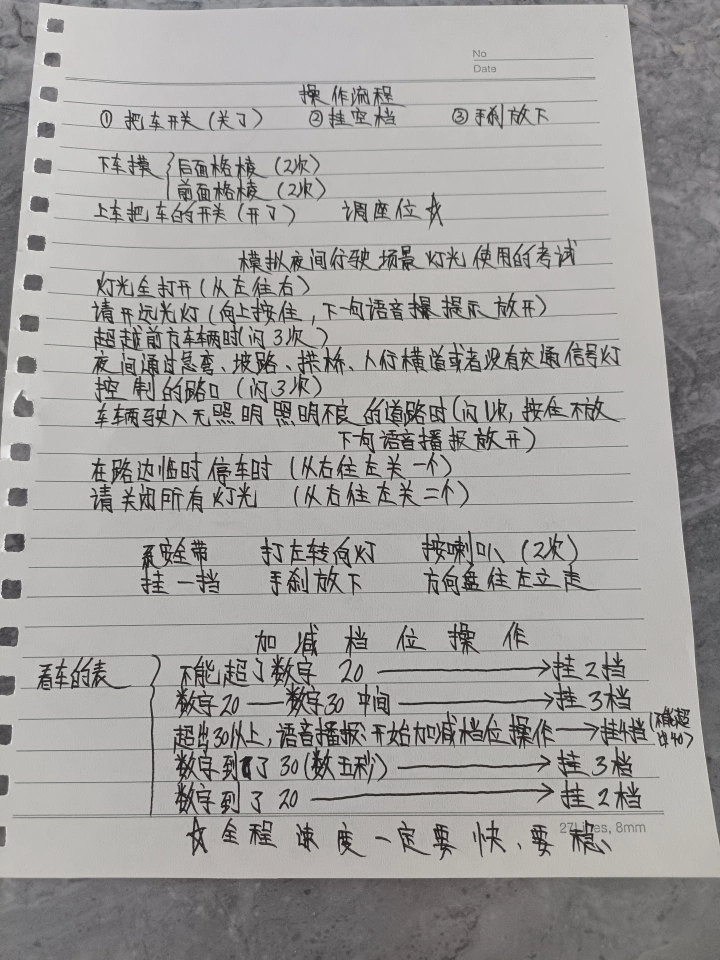 No
Date
操作流程
① 把车开关（关了） ②挂空档 ③手刹放下
下车摸 后面格棱（2次）
前面格棱（2次）
上车把车的开关（开了） 调座位☆
模拟夜间行驶场景灯光使用的考试
灯光全打开（从左往右）
请开远光灯（向上按住，下一句语音播提示放开）
超越前方车辆时（闪3次）
夜间通过急弯、坡路、拱桥、人行横道或者没有交通信号灯
控制的路口（闪3次）
车辆驶入无照明照明不良的道路时（闪1次，按住不放
下句语音播报放开）
在路边临时停车时（从右往左关一个）
请关闭所有灯光（从右往左关二个）
系安全带 打左转向灯 按喇叭（2次）
挂一挡 手刹放下 方向盘往左立走
加减档位操作
看车的表 不能超了数字20→挂2挡
数字20—数字30中间→挂3档
超出30以上，语音播报：开始加减档位操作→挂4挡（不能超
过40）
数字到了30（数五秒）→挂3档
数字到了20→挂2档
☆全程速度一定要快、要稳、
27Lines, 8mm